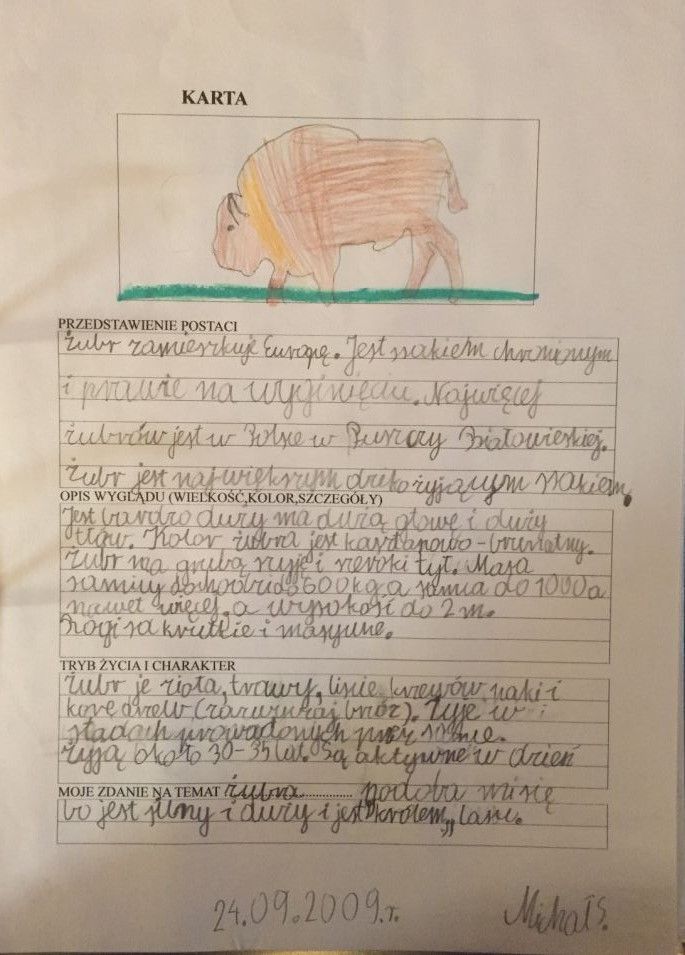 KARTA
PRZEDSTAWIENIE POSTACI
Żubr zamieszkuje Europę. Jest ssakiem chronionym
i prawie na wyginięciu. Najwięcej
żubrów jest w Polsce w Puszczy Białowieskiej.
Żubr jest największym dziko żyjącym ssakiem.
OPIS WYGLĄDU (WIELKOŚĆ,KOLOR,SZCZEGÓŁY)
Jest bardzo duży ma dużą głowę i duży
tłów. Kolor żubra jest kasztanowo-brunatny.
Żubr ma grubą szyję i szeroki tył. Masa
samicy dochodzi do 600 kg a samca do 1000 a
nawet więcej. a wysokość do 2 m.
Rogi są krutkie i masywne.
TRYB ŻYCIA I CHARAKTER
Żubr je zioła, trawy, liście krzewów, pąki i
korę drzew (zazwyczaj brzóz). Żyje w
stadach prowadzonych przez samice.
Żyją około 30-35 lat. Są aktywne w dzień
MOJE ZDANIE NA TEMAT żubra............... podoba mi się
bo jest silny i duży i jest "królem„ lasu.
24.09.2009.r.
Michał S.